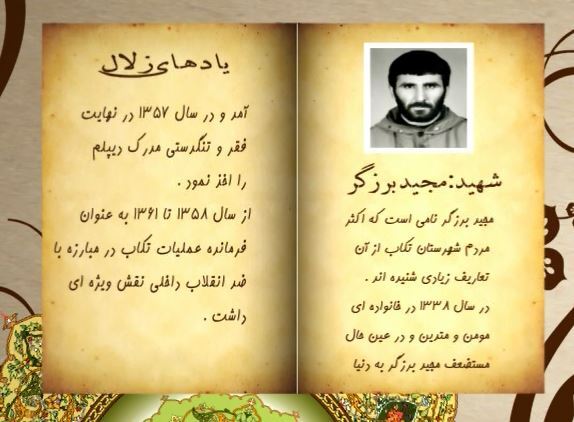 شهید:مجید برزگر
مجید برزگر نامی است که اکثر
مردم شهرستان تکاب از آن
تعاریف زیادی شنیده اند .
در سال ۱۳۳۸ در خانواده ای
مومن و متدین و در عین حال
مستضعف مجید برزگر به دنیا
یادهای زلال
آمد و در سال ۱۳۵۷ در نهایت
فقر و تنگدستی مدرک دیپلم
را اخذ نمود .
از سال ۱۳۵۸ تا ۱۳۶۱ به عنوان
فرمانده عملیات تکاب در مبارزه با
ضد انقلاب داخلی نقش ویژه ای
داشت .